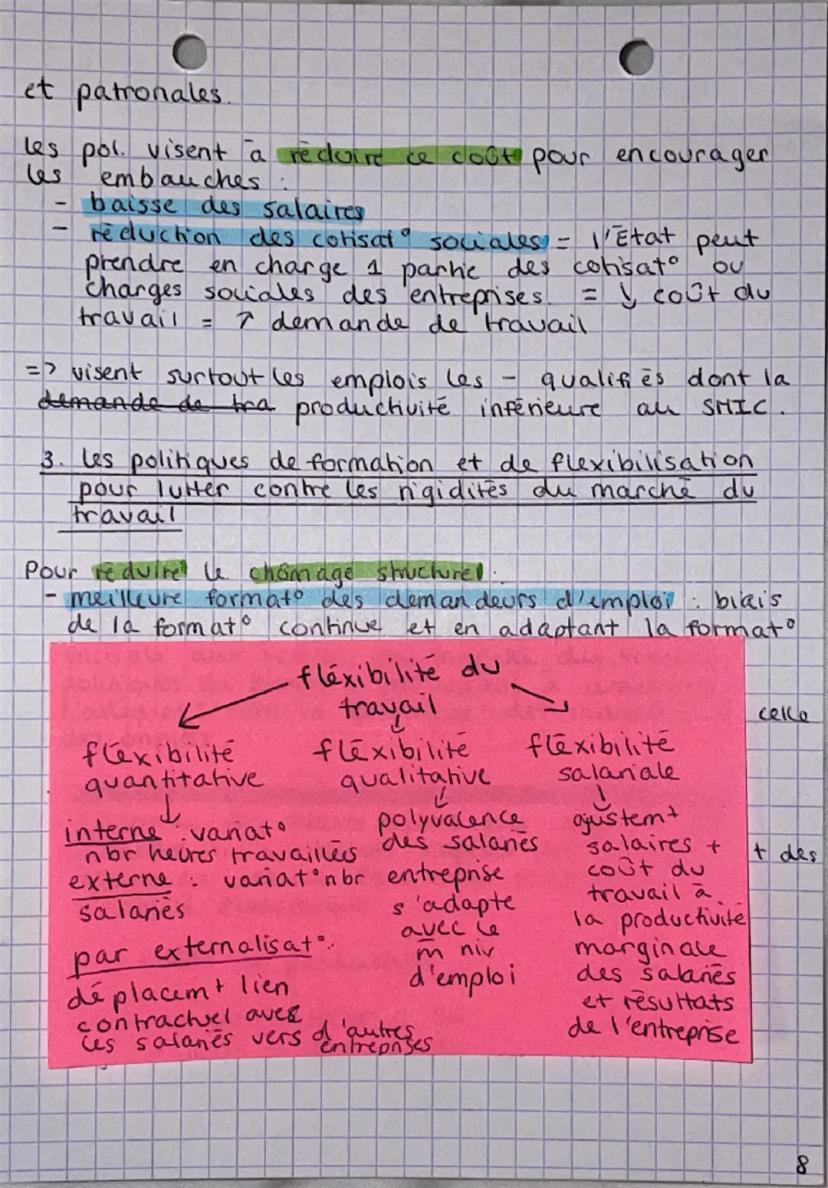 et patronales.
les pol. visent à réduire ce coût pour encourager
les embauches :
- baisse des salaires
- réduction des cotisat° sociales = l'Etat peut
prendre en charge 1 partie des cotisat° ou
charges sociales des entreprises. = ↓ coût du
travail = ↑ demande de travail
=> visent surtout les emplois les - qualifiés dont la
demande de tra productivité inférieure au SMIC.
3. Les politiques de formation et de flexibilisation
pour lutter contre les rigidités du marché du
travail
Pour réduire le chômage structurel :
- meilleure format° des demandeurs d'emploi : biais
de la format° continue et en adaptant la format°
celle
+ des
fléxibilité du
travail
fléxibilité
quantitative
interne : variat°
nbr heures travaillées
externe : variat° nbr
salariés
par externalisat° :
déplacemt lien
contractuel avec
les salariés vers d'autres
entreprises
fléxibilité
qualitative
polyvalence
des salariés
entreprise
s'adapte
avec le
m̄ niv
d'emploi
fléxibilité
salariale
ajustemt
salaires +
coût du
travail à
la productivité
marginale
des salariés
et résultats
de l'entreprise
8